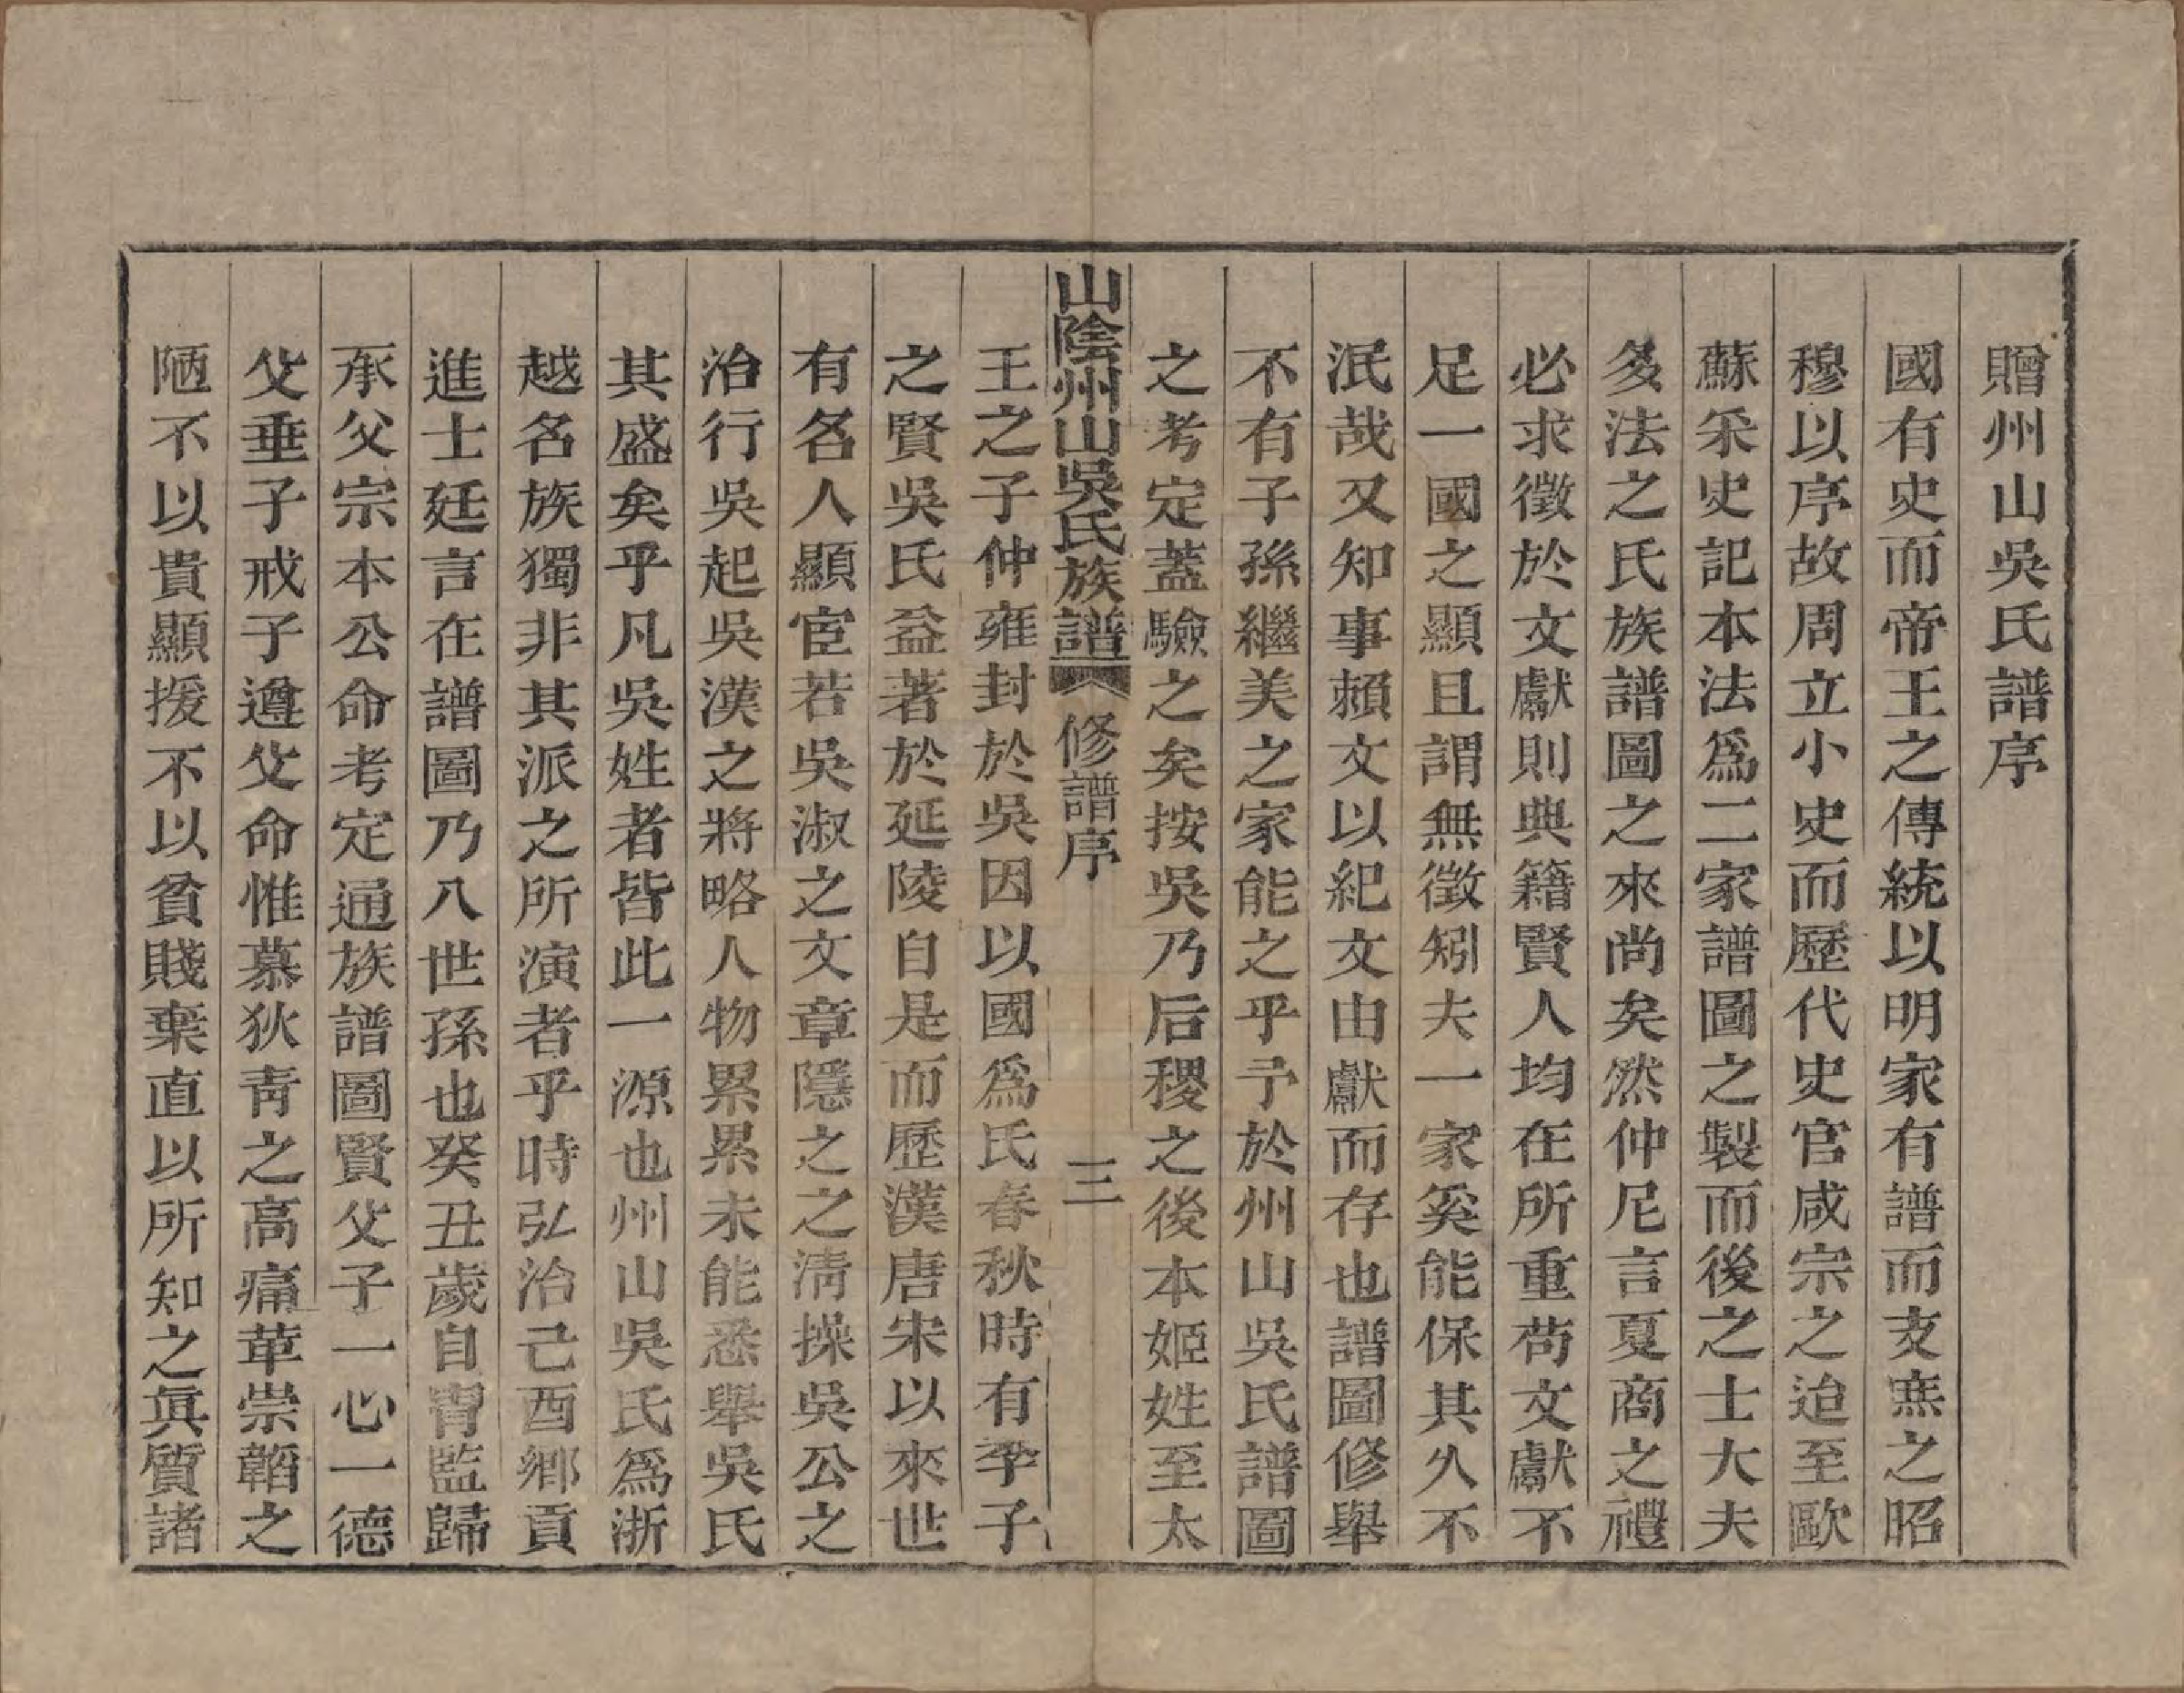 贈州山吳氏譜序
國有史而帝王之傳統以明家有譜而支庶之昭
穆以序故周立小史而歷代史官咸宗之迨至歐
蘇采史記本法爲二家譜圖之製而後之士大夫
多法之氏族譜圖之來尚矣然仲尼言夏商之禮
必求徵於文獻則典籍賢人均在所重苟文獻不
足一國之顯且謂無徵矧夫一家奚能保其久不
泯哉又知事賴文以紀文由獻而存也譜圖修舉
不有子孫繼美之家能之乎予於州山吳氏譜圖
之考定蓋驗之矣按吳乃后稷之後本姬姓至太
山陰州山吳氏族譜 修譜序 三
王之子仲雍封於吳因以國爲氏春秋時有季子
之賢吳氏益著於延陵自是而歷漢唐宋以來世
有名人顯宦若吳淑之文章隱之之淸操吳公之
治行吳起吳漢之將略人物累累未能悉舉吳氏
其盛矣乎凡吳姓者皆此一源也州山吳氏爲浙
越名族獨非其派之所演者乎時弘治己酉鄉貢
進士廷言在譜圖乃八世孫也癸丑歲自冑監歸
承父宗本公命考定通族譜圖賢父子一心一德
父垂子戒子遵父命惟慕狄靑之高痛革崇韜之
陋不以貴顯援不以貧賤棄直以所知之眞質諸